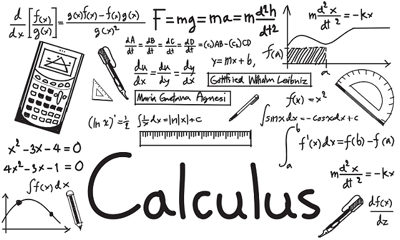 d/dx [f(x)/g(x)] = g(x)f(x) - f(x)g(x) / g(x)²
F=mg=ma=m d²h/dt2
m d²x/dt² = -kx
dA/dt = dB/dt = dC/dt = dD/dt = (c)AB-(C₀)CD
f(A)
du/dx = du/dy dy/dx
y=mx+b,
Gottfried Whelm Leibniz
a
Maria Gaetana Agnesi
f(x)=x²
(ln x)'=1/x
∫1/x dx=ln|x|+c
∫sinx dx=-cosx dx+c
x²-3x-4=0
4x²-3x-1=0
∫ₐᵇ f'(x)dx=f(b)-f(a)
∫f(x)dx
Calculus
m d²x/dt² = -kx
df(x)/dz